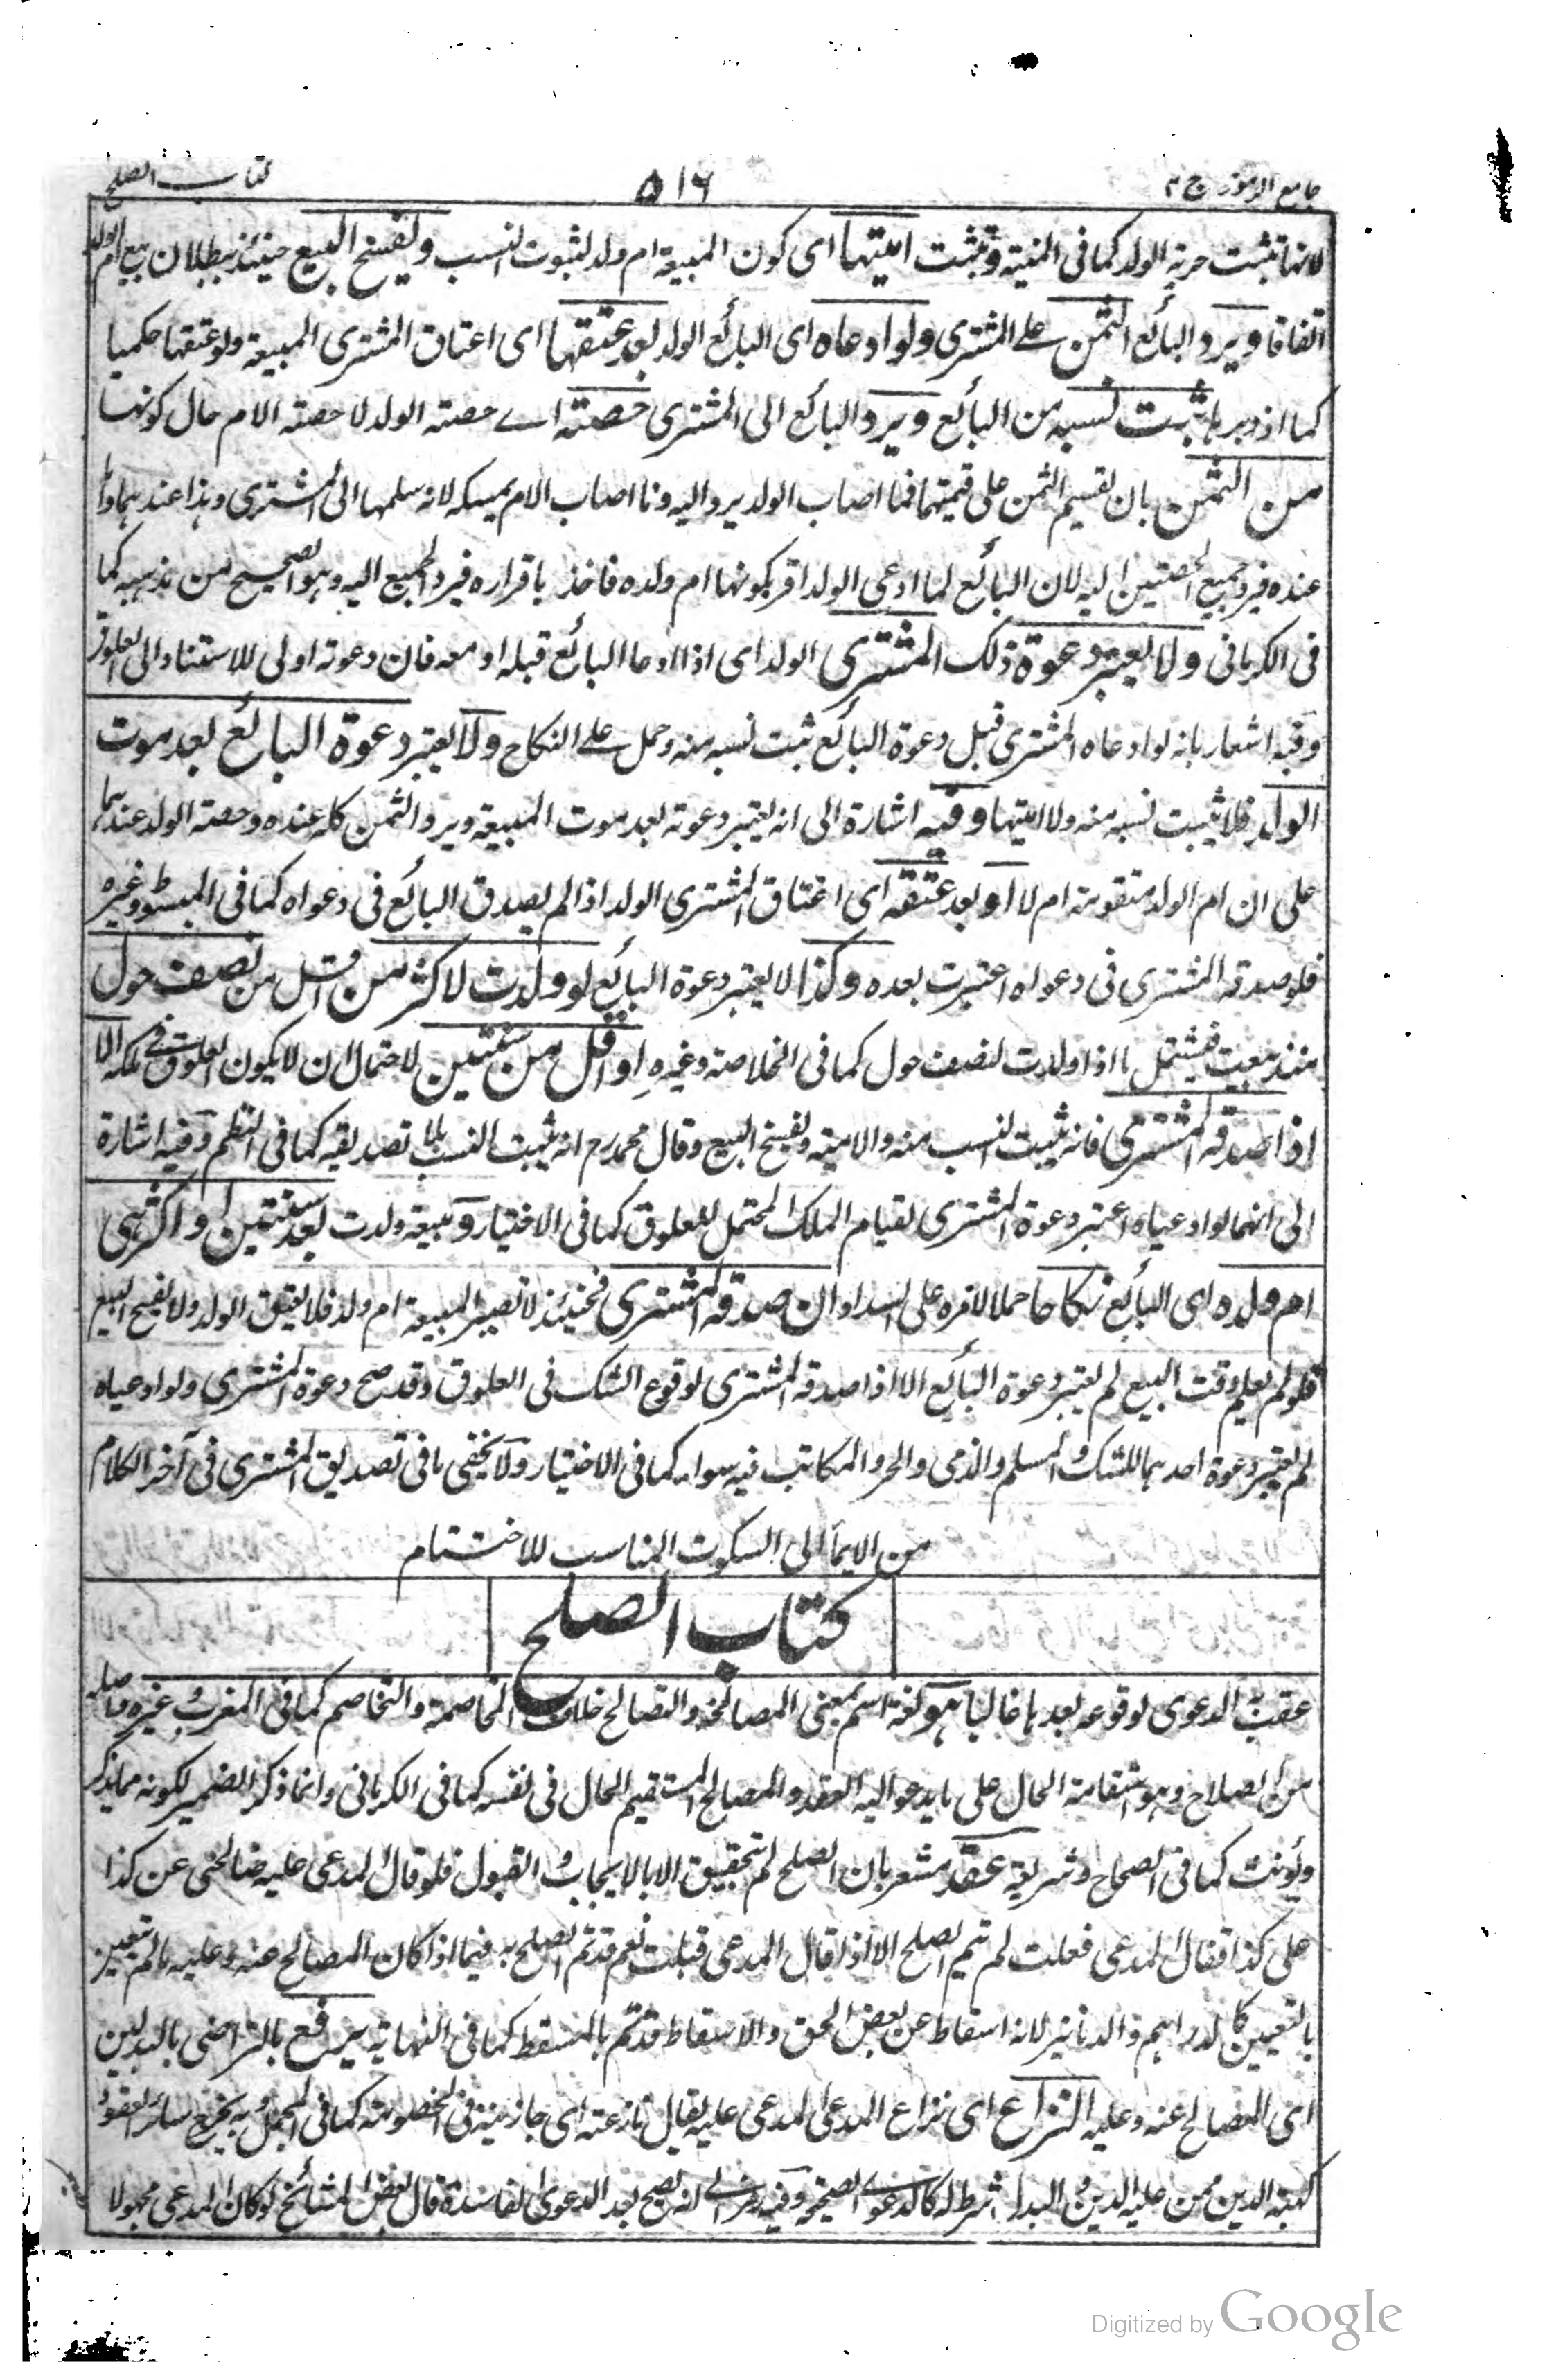 جامع الرموز ج ٢ ٥١٦ كتاب الصلح
لانها تثبت حرية الولد كما فى المنية وتثبت اميتها اى كون المبيعة ام ولد لثبوت النسب ويفسخ البيع حينئذ لبطلان بيع ام الولد
اتفاقا ويرد البائع الثمن على المشترى ولو ادعاه اى البائع الولد بعد عتقها اى اعتاق المشترى المبيعة ولو عتقها حكميا
كما اذ دبرها ثبت نسبه من البائع ويرد البائع الى المشترى حصته اے حصته الولد لا حصته الام حال كونها
من الثمن بان يقسم الثمن على قيمتهما فما اصاب الولد يرد اليه وما اصاب الام يمسكه لانه سلمها الى المشترى وهذا عندهما واما
عنده فيرد جميع الحصتين اليه لان البائع لما ادعى الولد اقر بكونها ام ولده فاخذ باقراره فيرد الجميع اليه وهو الصحيح من مذهبه كما
فى الكرمانى ولا يعتبر دعوة ذلك المشترى الولد اى اذا ادعا البائع قبله او معه فان دعوته اولى للاستناد الى العلوق
وفيه اشعار بانه لو ادعاه المشترى قبل دعوة البائع ثبت نسبه منه وحمل على النكاح ولا يعتبر دعوة البائع بعد موت
الولد فلا يثبت نسبه منه ولا اميتها وفيه اشارة الى انه يعتبر دعوته بعد موت المبيعة ويرد الثمن كله عنده وحصته الولد عندهما
على ان ام الولد متقومة ام لا او بعد عتقه اى اعتاق المشترى الولد اذا لم يصدق البائع فى دعواه كما فى المبسوط وغيره
فلو صدقه المشترى فى دعواه اعتبرت بعده وكذا لا يعتبر دعوة البائع لو ولدت لاكثر من اقل من نصف حول
منذ بيعت فيشتمل ما اذا ولدت لنصف حول كما فى الخلاصة وغيره او اقل من سنتين لاحتمال ان لا يكون العلوق فى ملكه الا
اذا صدقه المشترى فانه يثبت النسب منه والامية ويفسخ البيع وقال محمد رح انه يثبت النسب بلا تصديقه كما فى النظم وفيه اشارة
الى انهما لو ادعياه اعتبر دعوة المشترى لقيام الملك المحتمل للعلوق كما فى الاختيار ومبيعة ولدت بعد سنتين او اكثر هى
ام ولده اى البائع نكاحا حملا لامره على السداد ان صدقه المشترى فحينئذ لا تصير المبيعة ام ولد فلا يعتق الولد ولا يفسخ البيع
فلو لم يعلم وقت البيع لم يعتبر دعوة البائع الا اذا صدقه المشترى لوقوع الشك فى العلوق وقد صح دعوة المشترى ولو ادعياه
لم يعتبر دعوة احدهما للشك والمسلم والذمى والحر والمكاتب فيه سواء كما فى الاختيار ولا يخفى ما فى تصديق المشترى فى آخر الكلام
من الايماء الى السكوت المناسب للاختتام
كتاب الصلح
عقيب الدعوى لوقوعه بعدها غالبا هو لغة اسم بمعنى المصالحة والتصالح خلاف المخاصمة والتخاصم كما فى المغرب وغيره واصله
من الصلاح وهو استقامة الحال على ما يدعو اليه العقد والمصالح المستقيم الحال فى نفسه كما فى الكرمانى وانما ذكر الضمير لكونه مما يذكر
ويؤنث كما فى الصحاح وشريعة عقد مشعر بان الصلح لم يتحقق الا بالايجاب والقبول فلو قال المدعى عليه صالحنى عن كذا
على كذا فقال المدعى فعلت لم يتم الصلح الا اذا قال المدعى قبلت نعم قد تم الصلح به فيما اذا كان المصالح عنه وعليه ما لم يتعين
بالتعيين كالدراهم والدنانير لانه اسقاط عن بعض الحق والاسقاط قد تم بالمسقط كما فى النهاية يرفع بالتراضى بالبدلين
اى المصالح عنه وعليه النزاع اى نزاع المدعى المدعى عليه يقال نازعته اى جاذبته فى الخصومة كما فى المجمل وبه يخرج سائر العقود
كهبة الدين ممن عليه الدين والبدل شرط له كالدعوى الصحيحة وفيه رمز الى انه يصح بعد الدعوى الفاسدة قال بعض المشائخ لو كان المدعى مجهولا
Digitized by Google